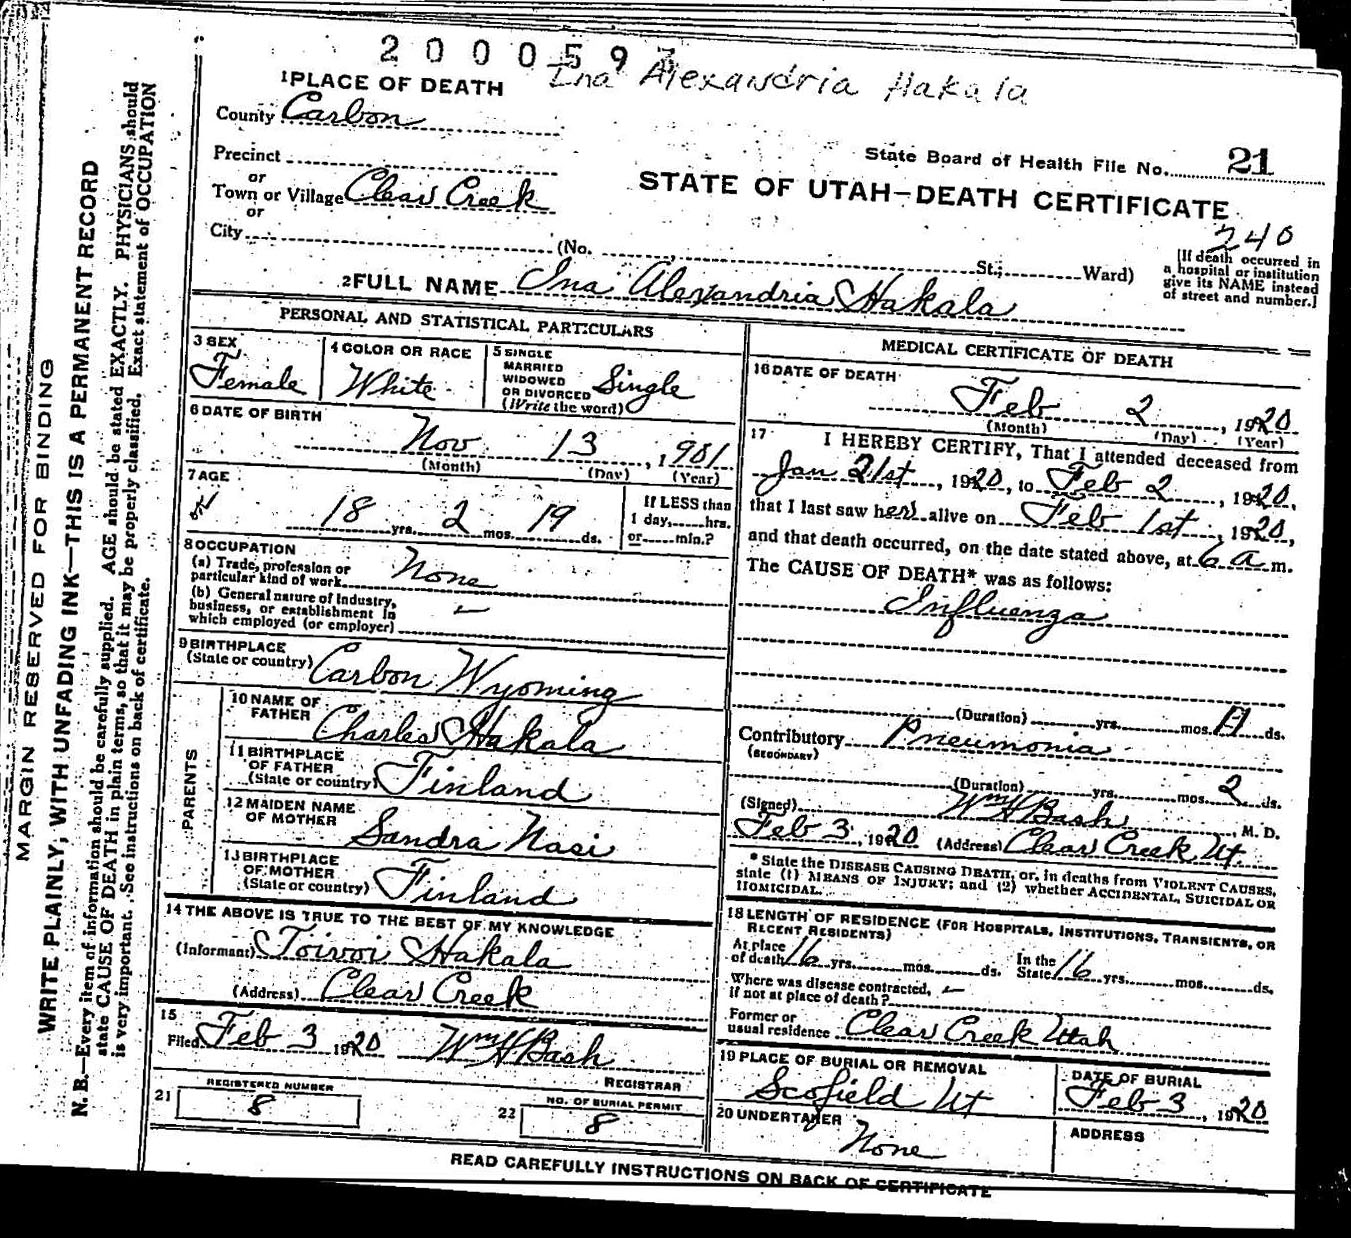 2000597
Ina Alexandria Hakala
1 PLACE OF DEATH
County Carbon
State Board of Health File No. 21
Precinct
or
Town or Village Clear Creek
or
STATE OF UTAH—DEATH CERTIFICATE
240
City (No. St.; Ward)
[If death occurred in
a hospital or institution
give its NAME instead
of street and number.]
2 FULL NAME Ina Alexandria Hakala
PERSONAL AND STATISTICAL PARTICULARS
3 SEX
Female
4 COLOR OR RACE
White
5 SINGLE
MARRIED
WIDOWED
OR DIVORCED
(Write the word)
Single
6 DATE OF BIRTH
Nov 13, 1901
(Month) (Day) (Year)
7 AGE
18 yrs. 2 mos. 19 ds.
If LESS than
1 day, hrs.
or min.?
8 OCCUPATION
(a) Trade, profession or
particular kind of work None
(b) General nature of Industry,
business, or establishment in
which employed (or employer)
9 BIRTHPLACE
(State or country) Carbon Wyoming
PARENTS
10 NAME OF
FATHER Charles Hakala
11 BIRTHPLACE
OF FATHER
(State or country) Finland
12 MAIDEN NAME
OF MOTHER Sandra Nasi
13 BIRTHPLACE
OF MOTHER
(State or country) Finland
14 THE ABOVE IS TRUE TO THE BEST OF MY KNOWLEDGE
(Informant) Toivoi Hakala
(Address) Clear Creek
15
Filed Feb 3 1920 Wm H Bash
REGISTRAR
21 REGISTERED NUMBER
8
22 NO. OF BURIAL PERMIT
8
MEDICAL CERTIFICATE OF DEATH
16 DATE OF DEATH
Feb 2, 1920
(Month) (Day) (Year)
17 I HEREBY CERTIFY, That I attended deceased from
Jan 21st, 1920, to Feb 2, 1920,
that I last saw her alive on Feb 1st, 1920,
and that death occurred, on the date stated above, at 6 a m.
The CAUSE OF DEATH* was as follows:
Influenza
(Duration) yrs. mos. ds.
Contributory Pneumonia
(SECONDARY)
(Duration) yrs. mos. 2 ds.
(Signed) Wm H Bash, M. D.
Feb 3, 1920 (Address) Clear Creek Ut.
* State the DISEASE CAUSING DEATH, or, in deaths from VIOLENT CAUSES,
state (1) MEANS OF INJURY; and (2) whether ACCIDENTAL, SUICIDAL OR
HOMICIDAL.
18 LENGTH OF RESIDENCE (FOR HOSPITALS, INSTITUTIONS, TRANSIENTS, OR
RECENT RESIDENTS)
At place
of death 16 yrs. mos. ds.
In the
State 16 yrs. mos. ds.
Where was disease contracted,
if not at place of death?
Former or
usual residence Clear Creek Utah
19 PLACE OF BURIAL OR REMOVAL
Scofield Ut
DATE OF BURIAL
Feb 3, 1920
20 UNDERTAKER
None
ADDRESS
READ CAREFULLY INSTRUCTIONS ON BACK OF CERTIFICATE
MARGIN RESERVED FOR BINDING
WRITE PLAINLY, WITH UNFADING INK—THIS IS A PERMANENT RECORD
N. B.—Every item of information should be carefully supplied. AGE should be stated EXACTLY. PHYSICIANS should
state CAUSE OF DEATH in plain terms, so that it may be properly classified. Exact statement of OCCUPATION
is very important. See instructions on back of certificate.